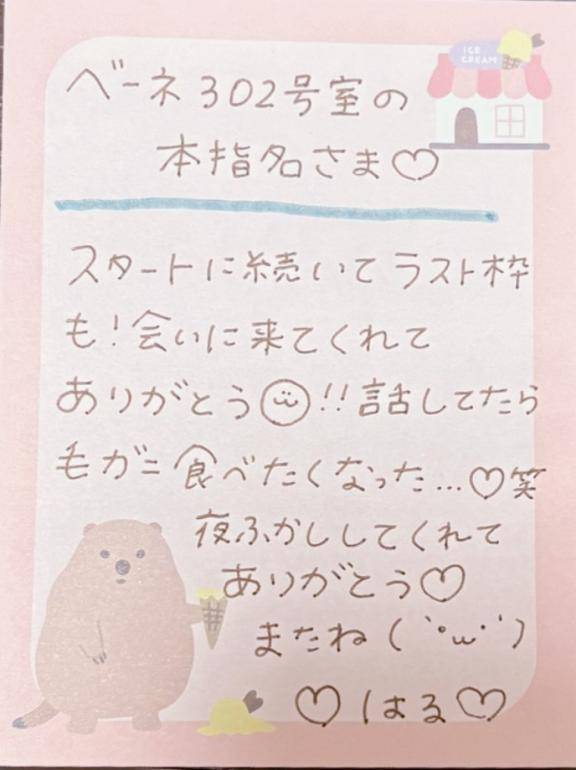 ICE
CREAM
ベーネ302号室の
本指名さま♡
スタートに続いてラスト枠
も!会いに来てくれて
ありがとう!!話してたら
毛ガニ食べたくなった...♡笑
夜ふかししてくれて
ありがとう♡
またね(`・ω・´)
♡はる♡